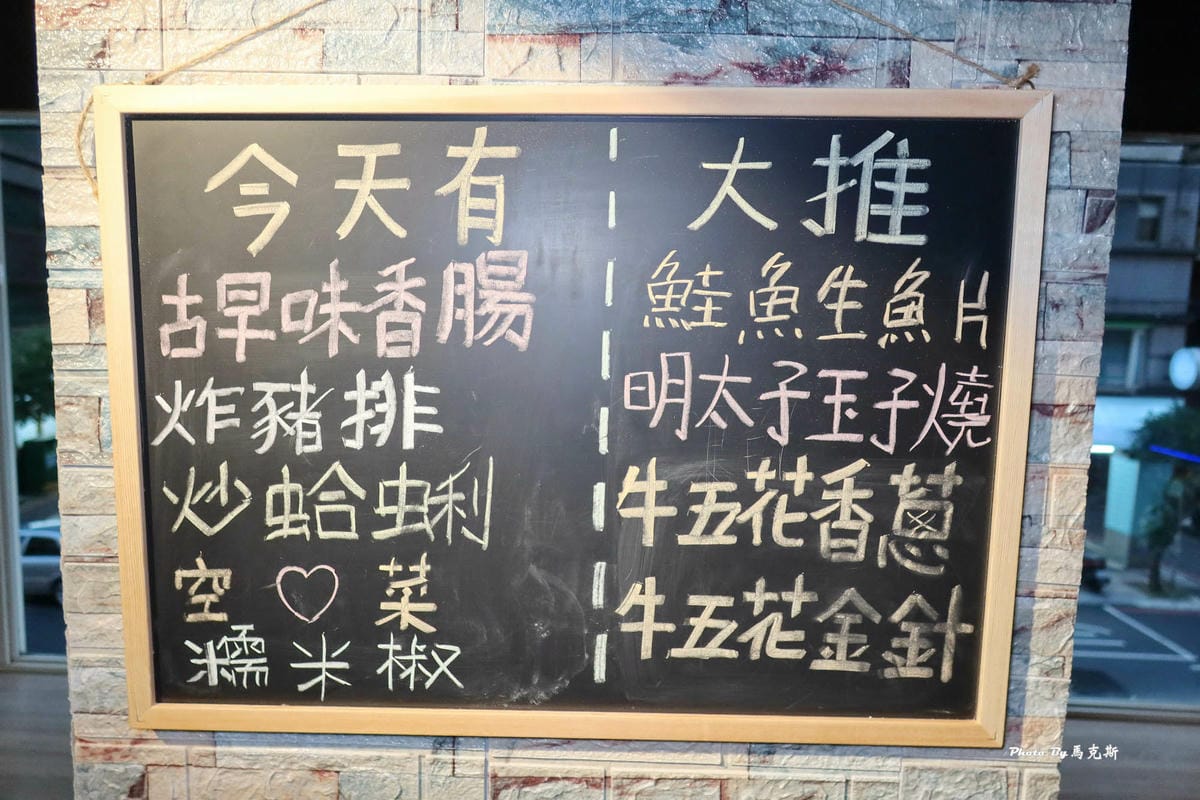 今天有
古早味香腸
炸豬排
炒蛤蜊
空♡菜
糯米椒
大推
鮭魚生魚片
明太子玉子燒
牛五花香蔥
牛五花金針
Photo By 馬克斯